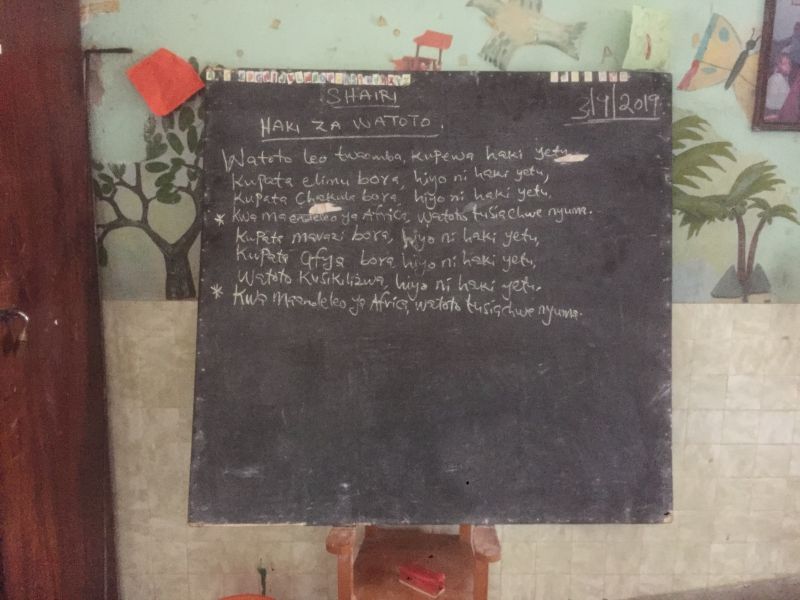 SHAIRI
3/9/2019
HAKI ZA WATOTO.
Watoto leo twaomba, kupewa haki yetu
Kupata elimu bora, hiyo ni haki yetu,
Kupata Chakula bora, hiyo ni haki yetu,
* Kwa maendeleo ya Africa, watoto tusiachwe nyuma.
Kupata mavazi bora, hiyo ni haki yetu,
Kupata afya bora, hiyo ni haki yetu,
Watoto Kusikilizwa, hiyo ni haki yetu.
* Kwa Maendeleo ya Africa, watoto tusiachwe nyuma.